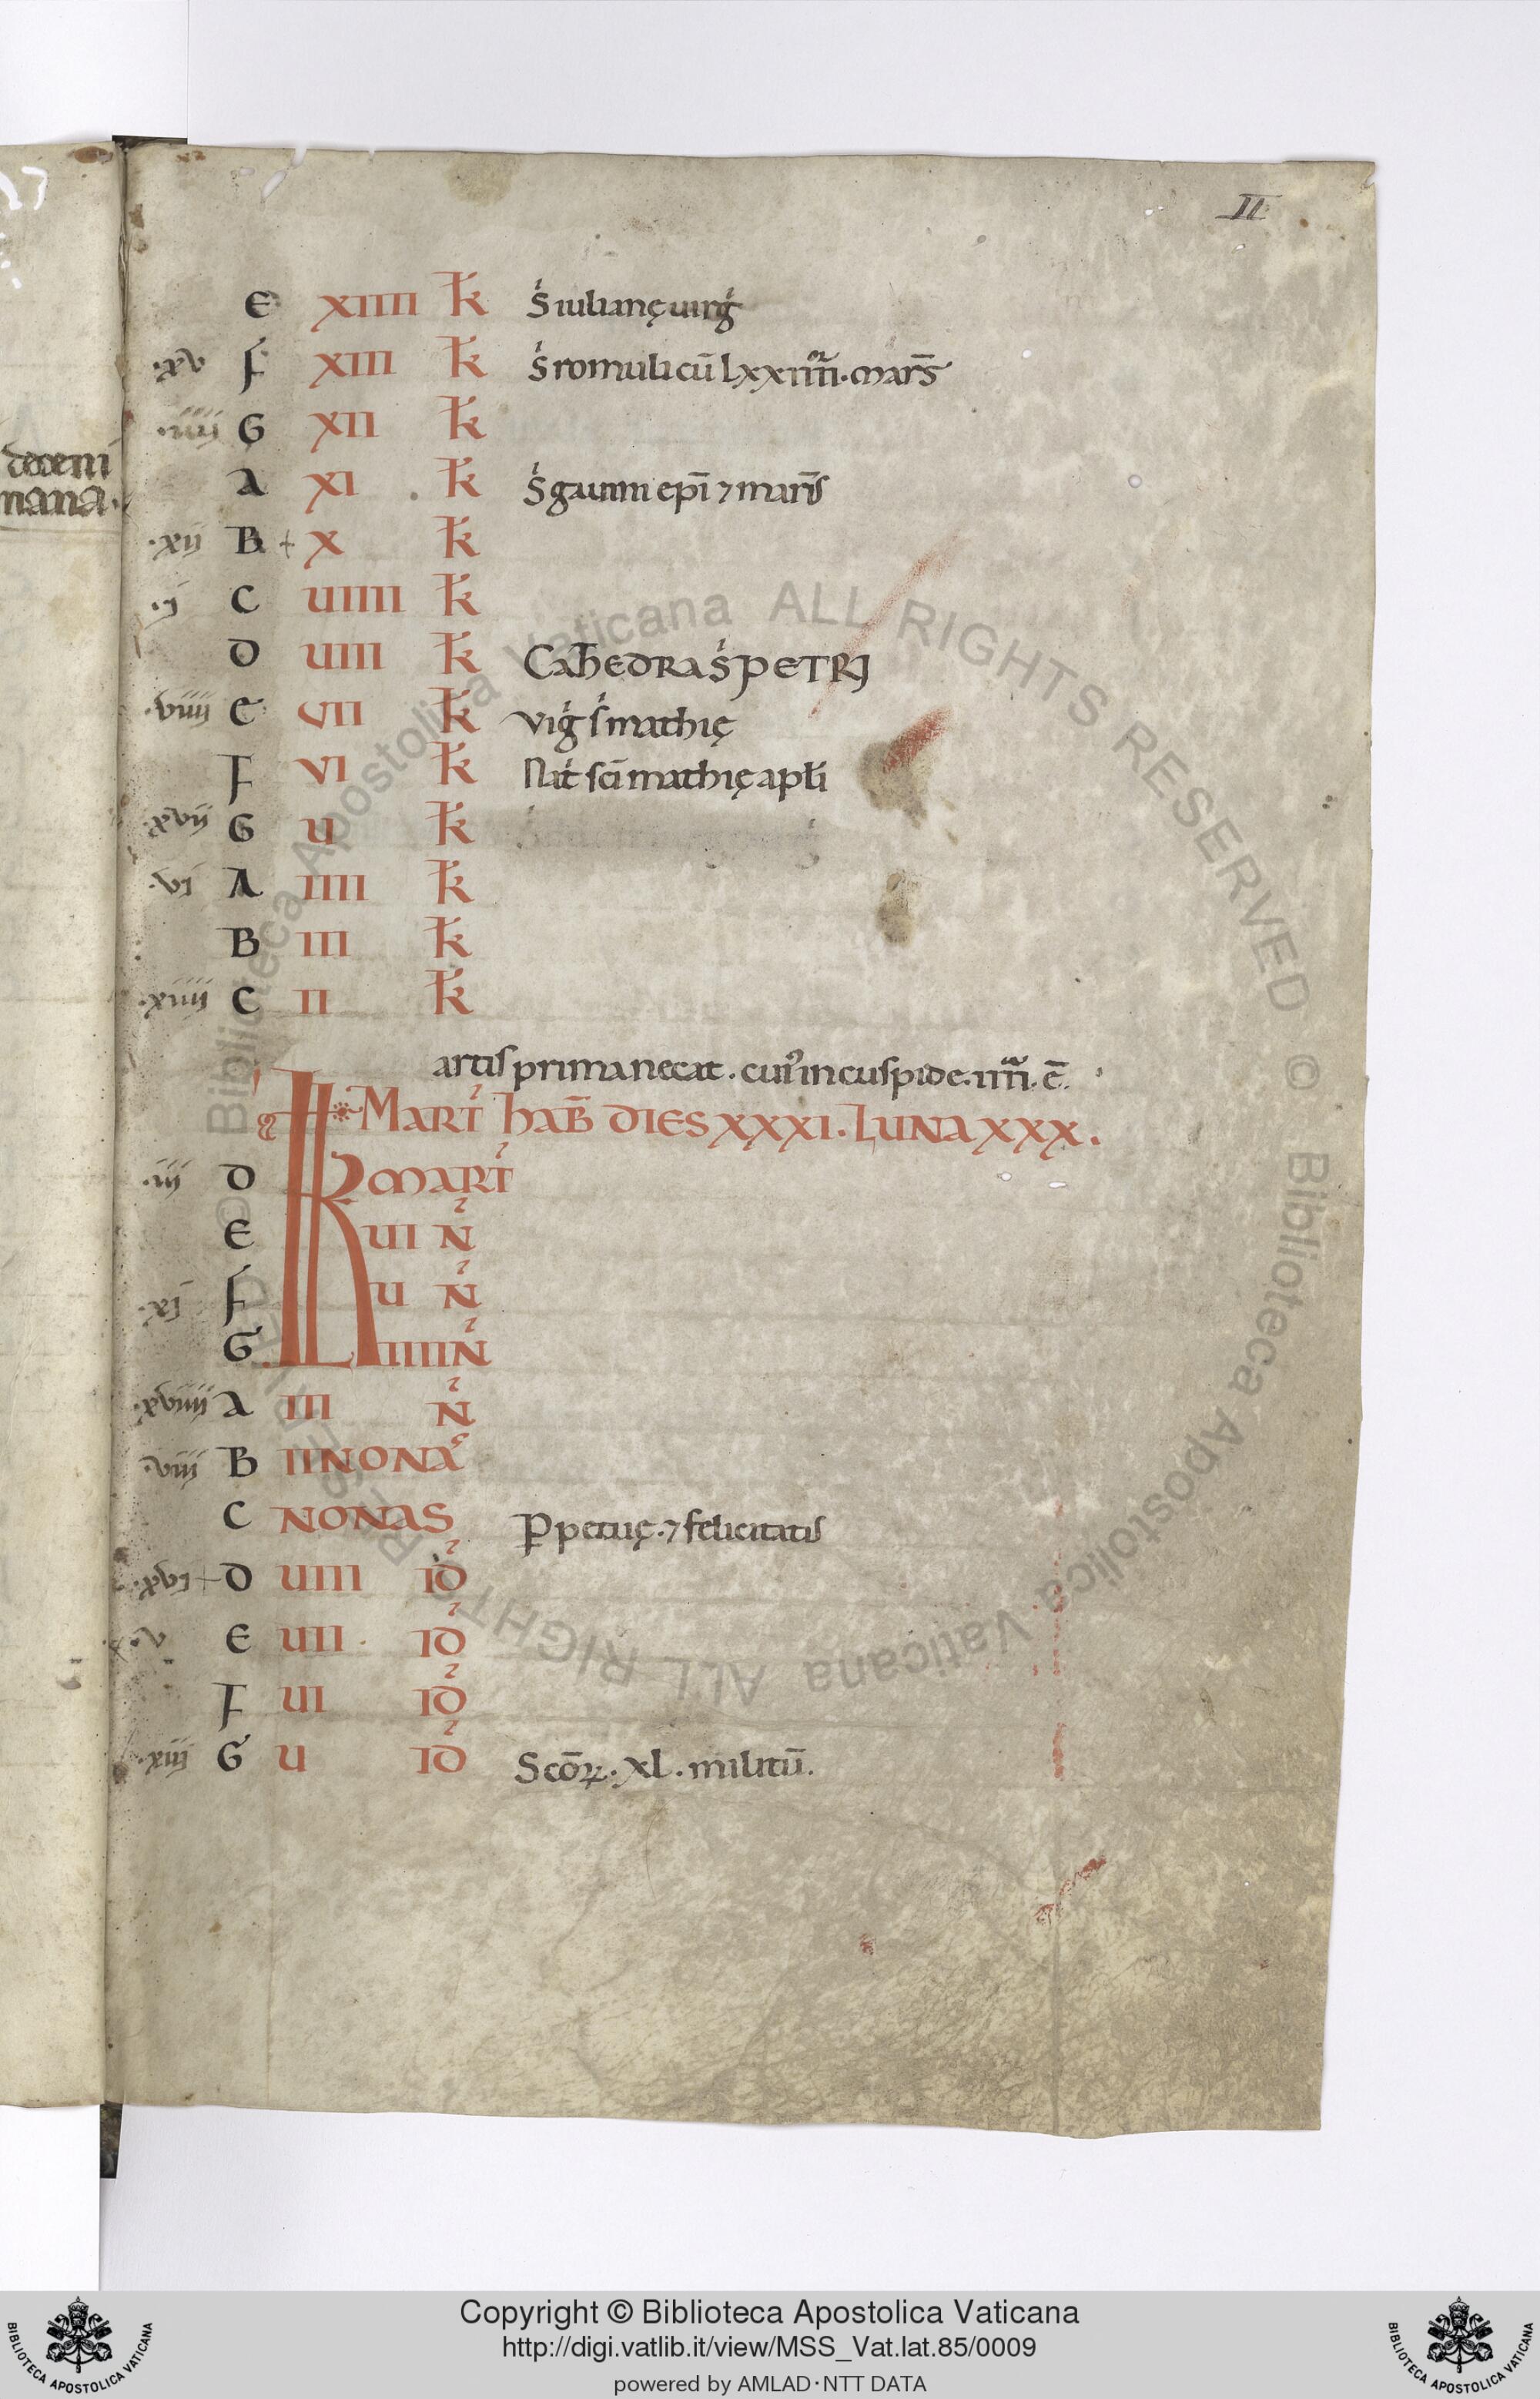 deceni
mana.
II
E XIIII k̄ S̄ iulianę uirḡ
.xv F XIII k̄ S̄ romuli cū lxxiiii. mar̄s
.iiii G XII k̄
A XI k̄ S̄ gauini ep̄i ⁊ mar̄s
.xij B + X k̄
.ij C UIIII k̄
D UIII k̄ CAThEDRA S̄ PETRI
.viiij E VII k̄ Viḡ s̄ mathię
F VI k̄ Nat̄ sc̄i mathię apl̄i
.xvij G U k̄
.vi A IIII k̄
B III k̄
.xiiij C II k̄
artis prima necat. cui᷒ in cuspide. iiii. ē.
MART̄ hAB̄ DIES XXXI. LUNA XXX.
.iij D KL MART̄
E UI N̄
.xi F U N̄
G IIII N̄
.xviiij A III N̄
.viij B II NONA᷒
C NONAS P̱petuę. ⁊ felicitatis
.xvi + D UIII ID̄
.v E UII ID̄
F UI ID̄
.xiij G U ID̄ Scōꝝ. xl. militū.
© Biblioteca Apostolica Vaticana ALL RIGHTS RESERVED © Biblioteca Apostolica Vaticana ALL RIGHTS RESERVED
BIBLIOTECA APOSTOLICA VATICANA
Copyright © Biblioteca Apostolica Vaticana
http://digi.vatlib.it/view/MSS_Vat.lat.85/0009
powered by AMLAD·NTT DATA
BIBLIOTECA APOSTOLICA VATICANA